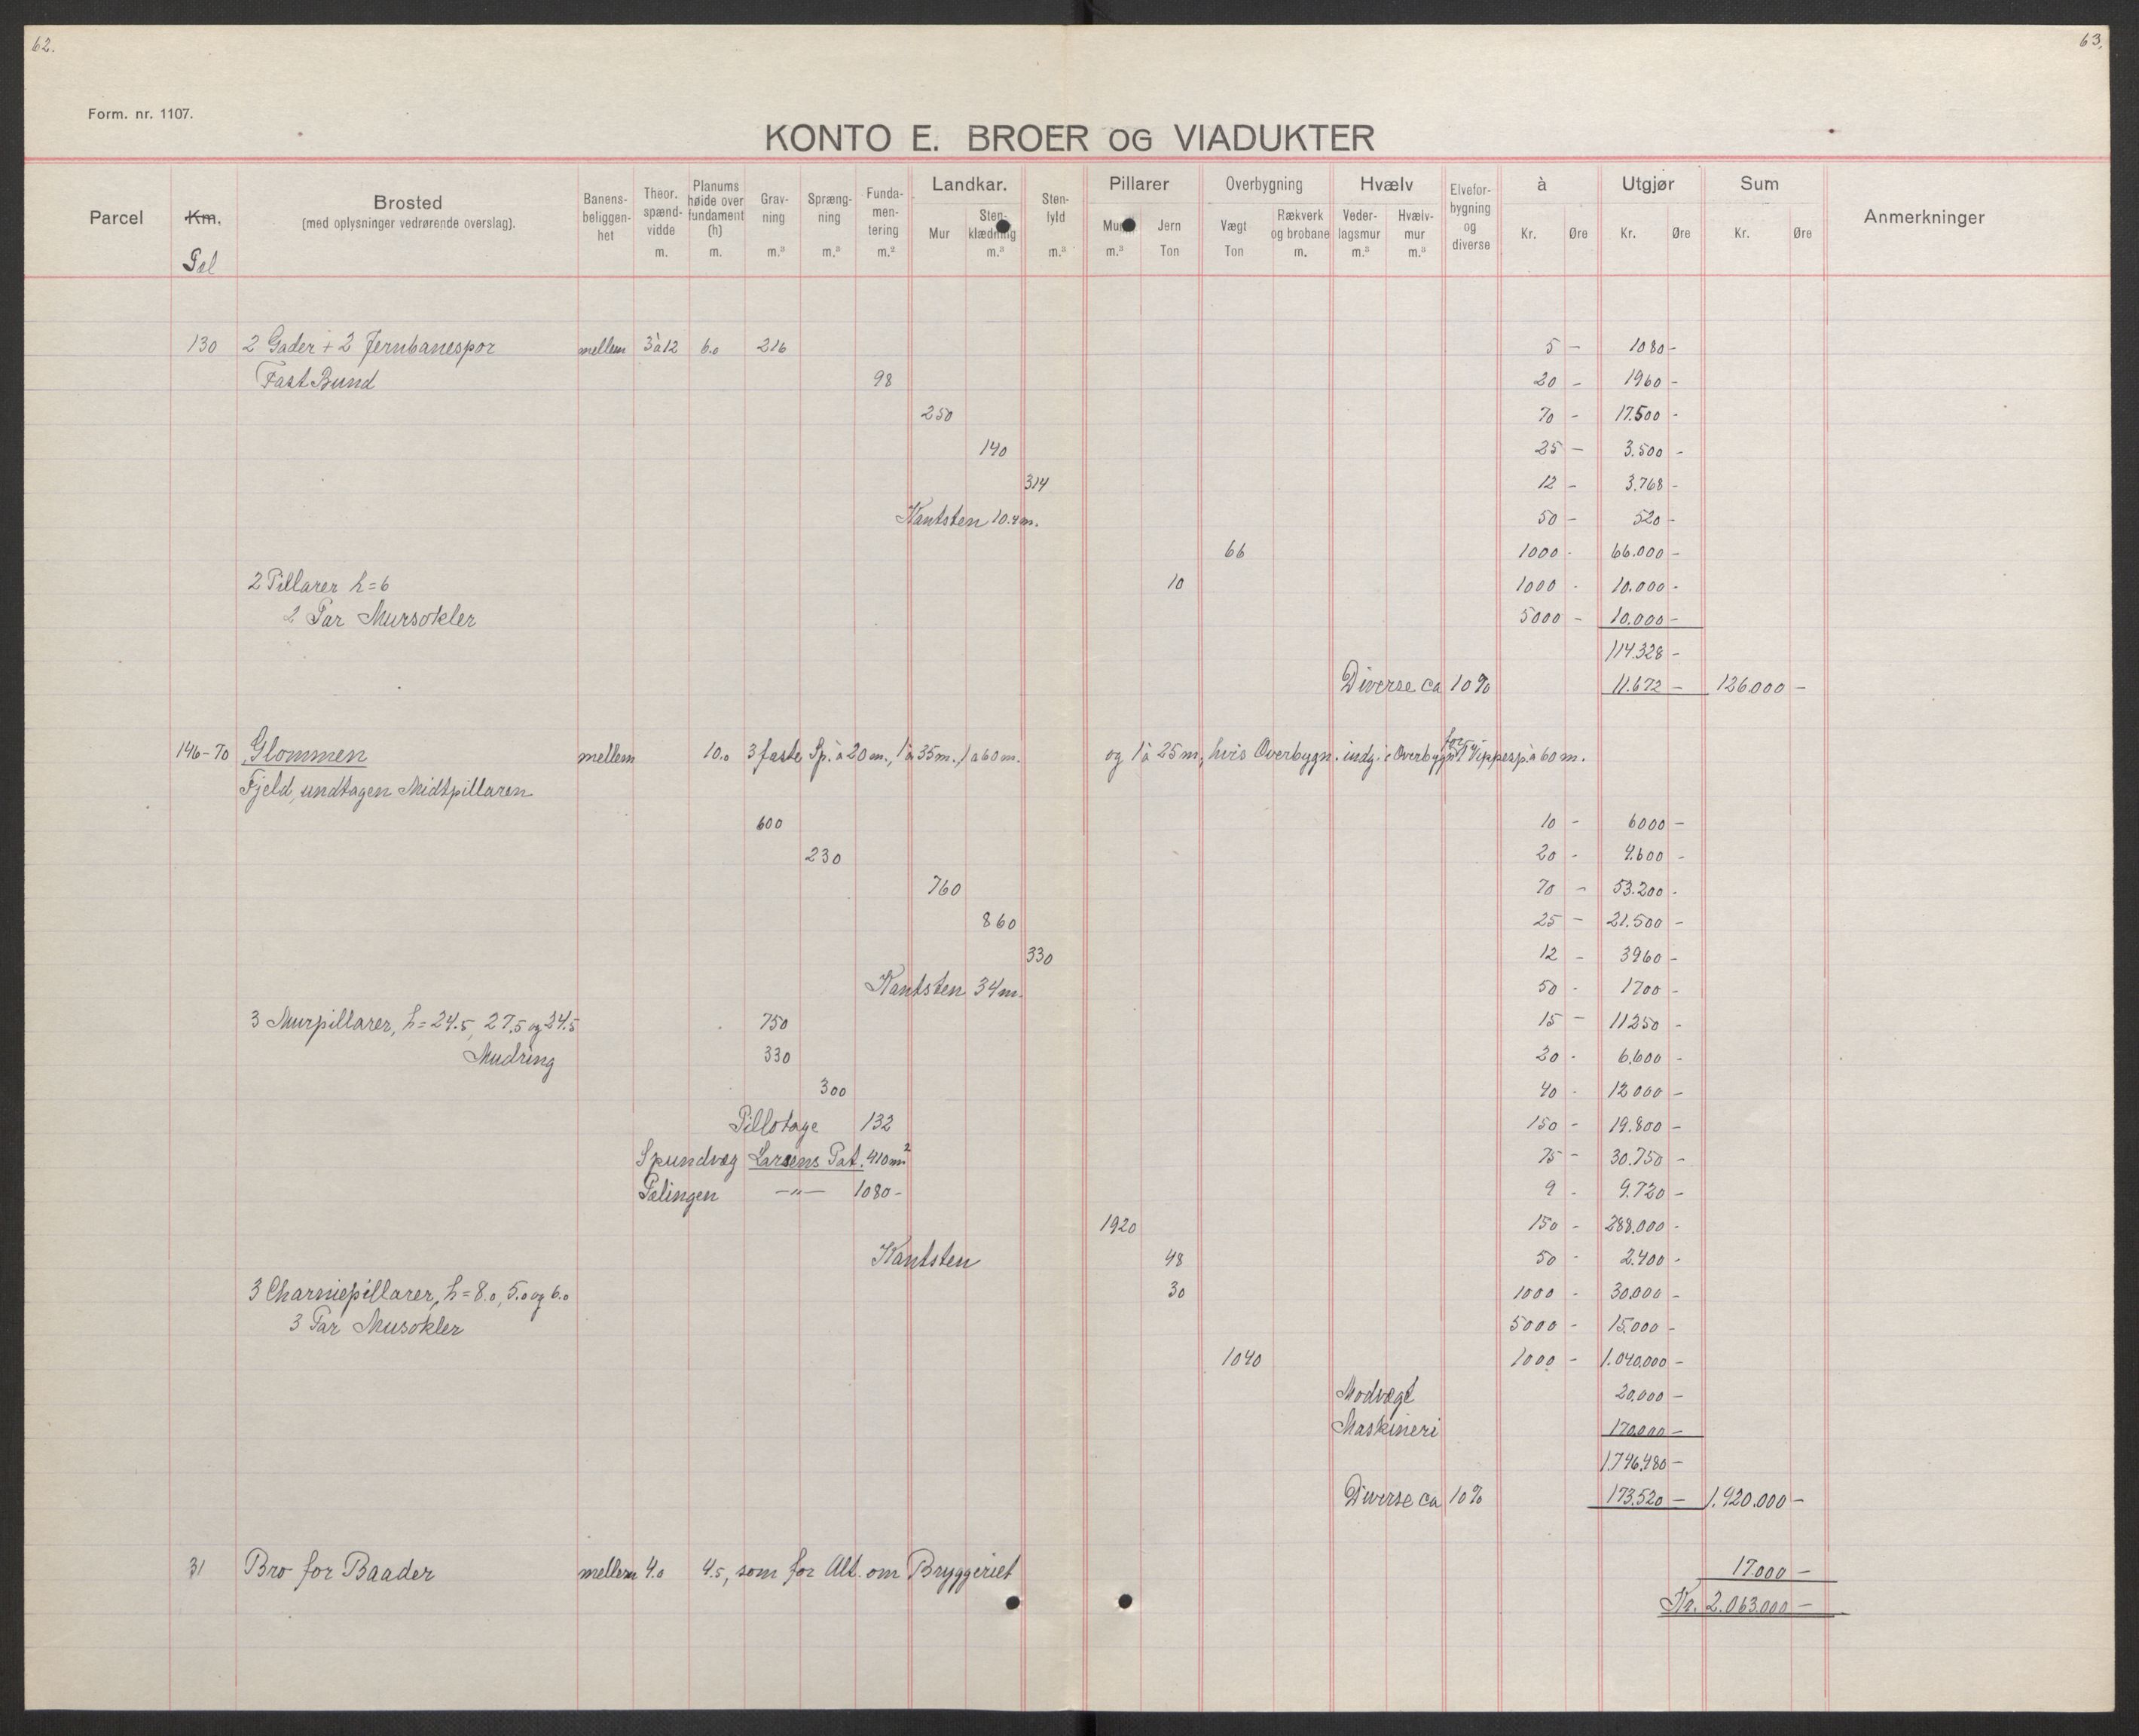 62.
63.
Form. nr. 1107.
KONTO E. BROER OG VIADUKTER
Parcel Km. Pel Brosted (med oplysninger vedrørende overslag). Banens-beliggen-het Theor. spænd-vidde m. Planums høide over fundament (h) m. Grav-ning m.³ Spræng-ning m.³ Funda-men-tering m.² Landkar. Mur Sten-klædning m.³ Sten-fyld m.³ Pillarer Mur m.³ Jern Ton Overbygning Vægt Ton Rækverk og brobane m. Hvælv Veder-lagsmur m.³ Hvælv-mur m.³ Elvefor-bygning og diverse à Kr. Øre Utgjør Kr. Øre Sum Kr. Øre Anmerkninger
130 2 Gader + 2 Jernbanespor mellem 3 à 12 6.0 216 5 - 1080 -
Fast Bund 98 20 - 1960 -
250 70 - 17.500 -
140 25 - 3.500 -
314 12 - 3.768 -
Kantsten 10.4 m. 50 - 520 -
66 1000 - 66.000 -
2 Pillarer h = 6 10 1000 - 10.000 -
2 Par Mursokler 5000 - 10.000 -
114.328 -
Diverse ca 10 % 11.672 - 126.000 -
146-70 Glommen mellem 10.0 3 faste Sp. à 20 m., 1 à 35 m. 1 à 60 m. og 1 à 25 m, hvis Overbygn. indg. i Overbygn. for 1 Vippesp. à 60 m.
Fjeld, undtagen Midtpillaren
600 10 - 6000 -
230 20 - 4.600 -
760 70 - 53.200 -
860 25 - 21.500 -
330 12 - 3960 -
Kantsten 34 m. 50 - 1700 -
3 Murpillarer, h = 24.5, 27.5 og 24.5 750 15 - 11250 -
Mudring 330 20 - 6.600 -
300 40 - 12000 -
Pillotage 132 150 - 19.800 -
Spundvæg Larsens Pat. 410 m² 75 - 30.750 -
Pælingen -"- 1080 - 9 - 9.720 -
1920 150 - 288.000 -
Kantsten 48 50 - 2.400 -
3 Charniepillarer, h = 8.0, 5.0 og 6.0 30 1000 - 30.000 -
3 Par Musokler 5000 - 15.000 -
1040 1000 - 1.040.000 -
Modvægt 20.000 -
Maskineri 170.000 -
1.746.480 -
Diverse ca 10 % 173.520 - 1.920.000 -
31 Bro for Baader mellem 4.0 4.5, som for Alt. om Bryggeriet 17.000 -
Kr. 2.063.000 -